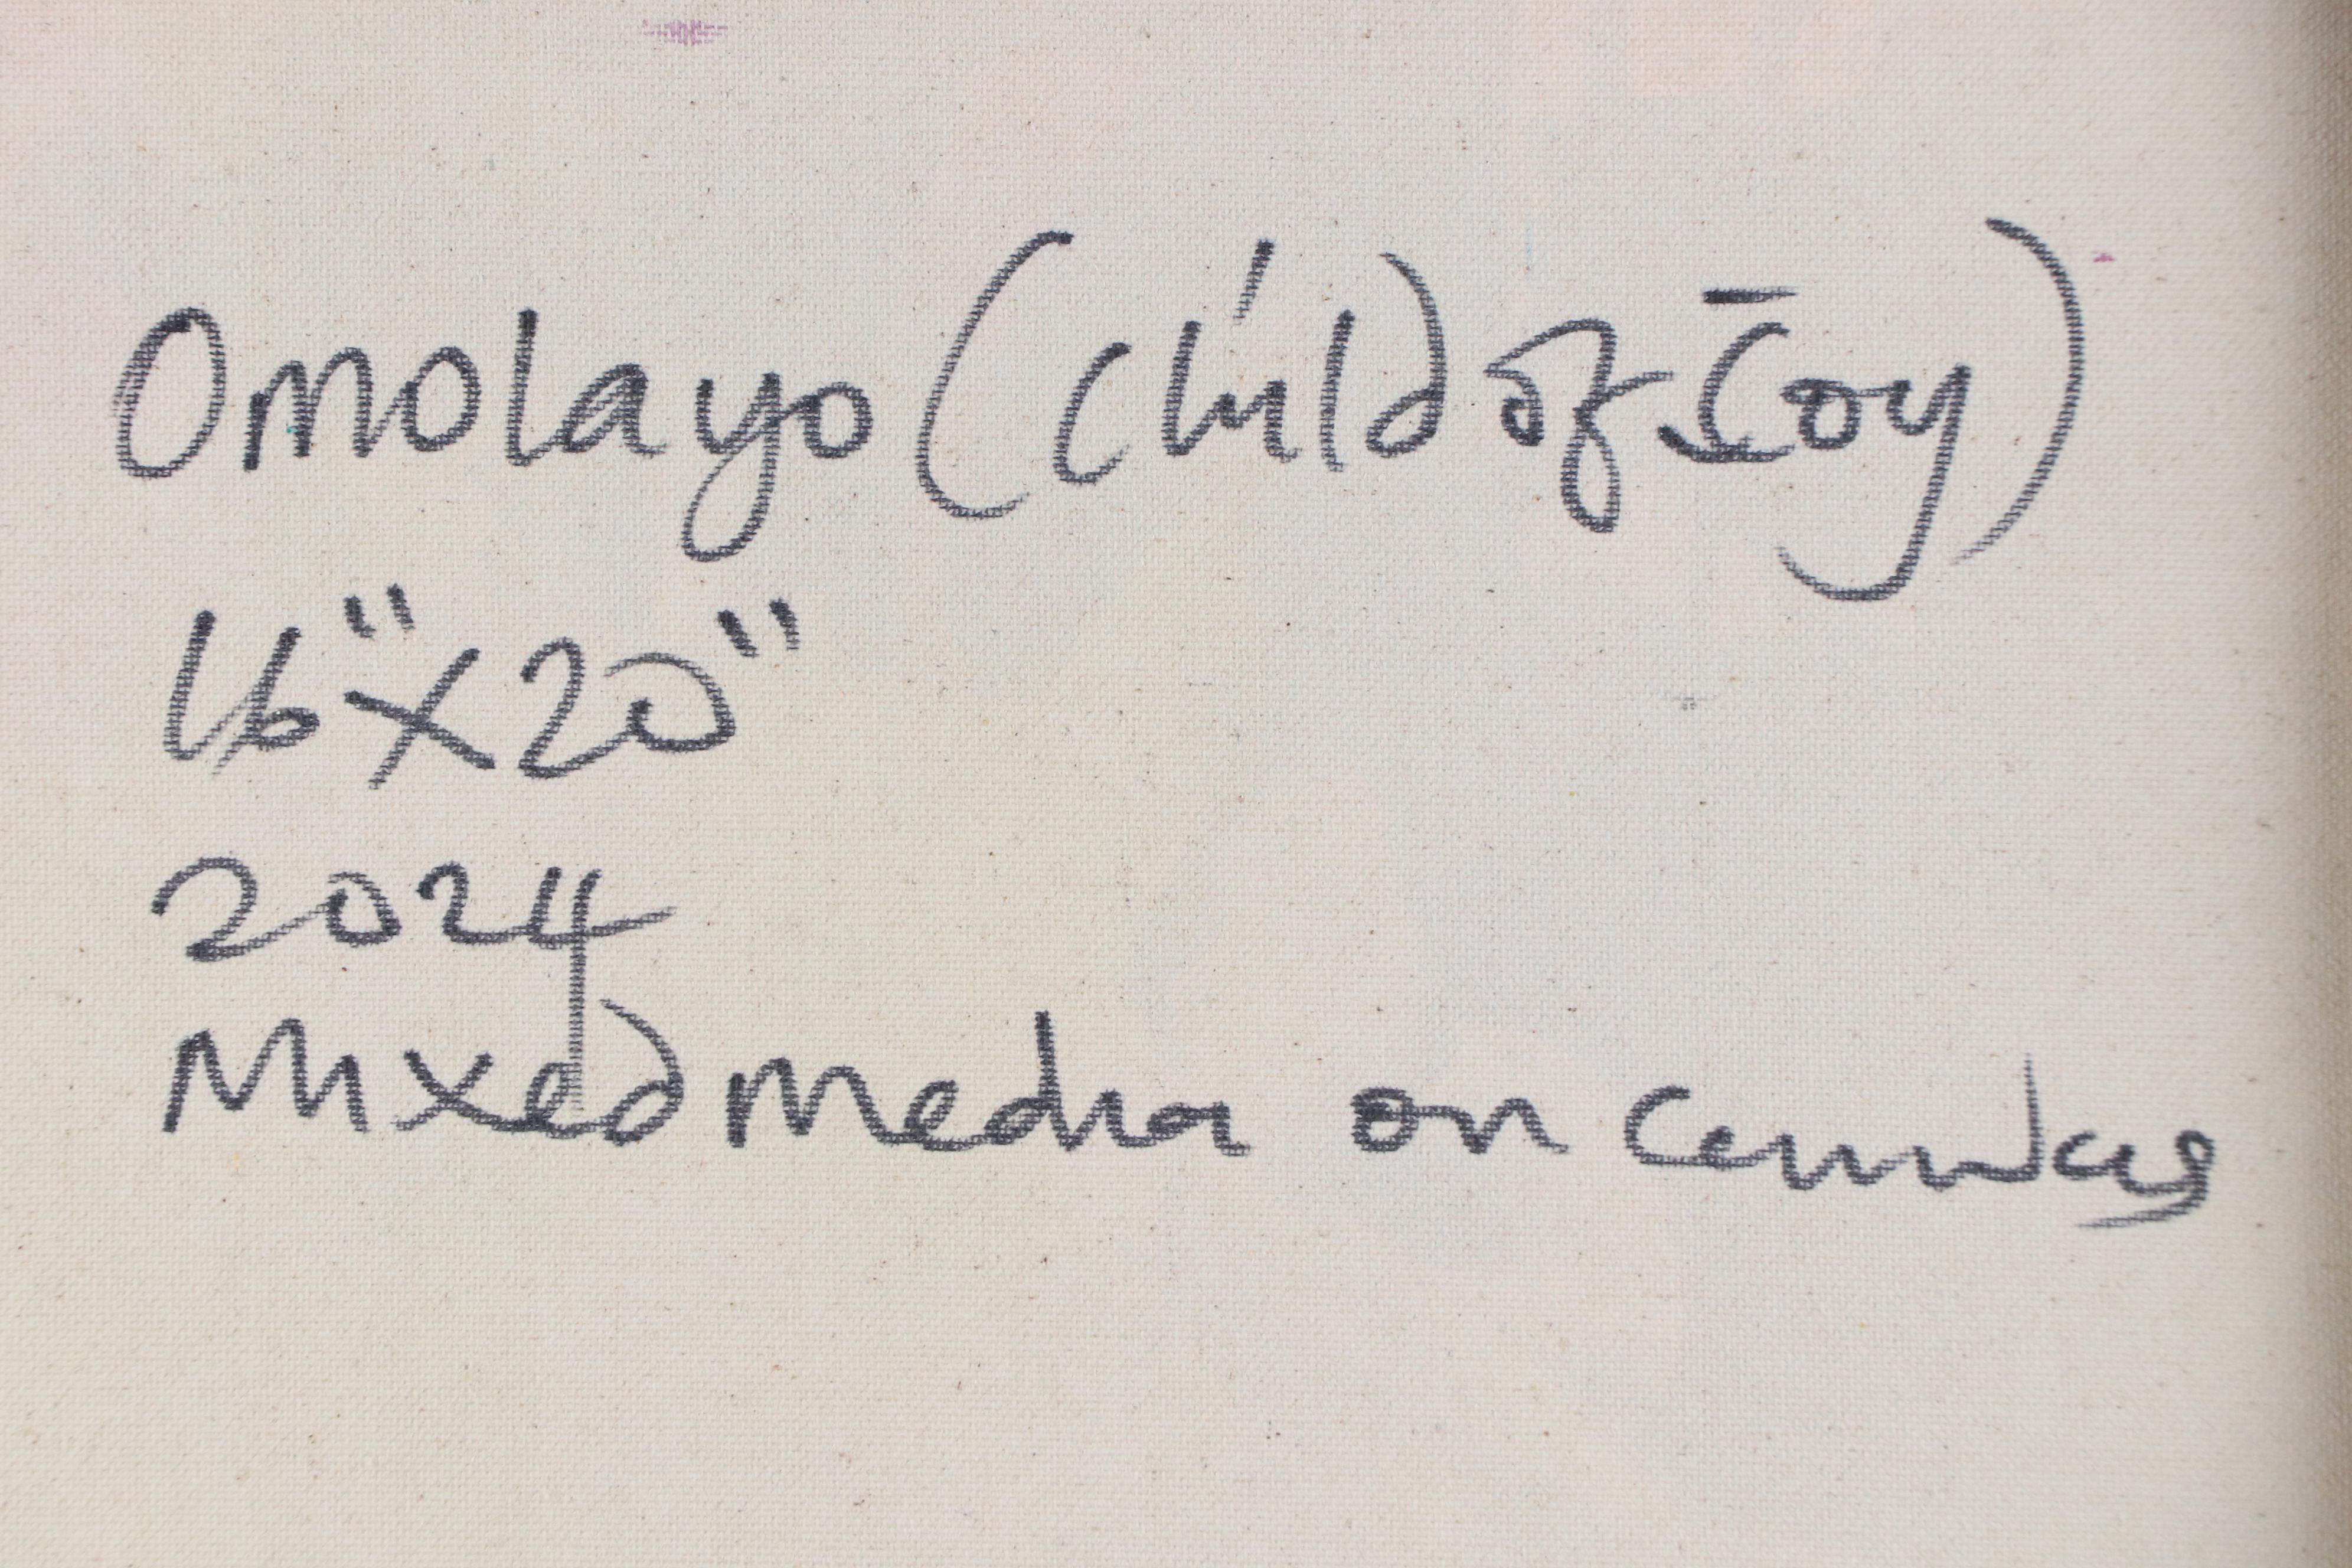 Omolayo (child of Joy)
16" x 20"
2024
Mixed media on canvas